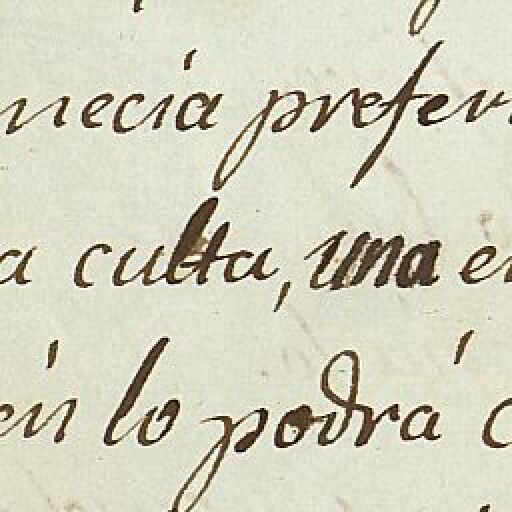 necia prefer
a culta, una e
én lo podrá c